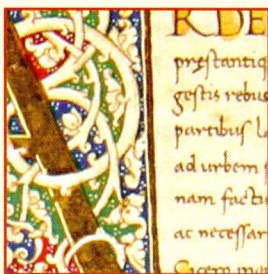 RDE
pręstantiq
gestis rebus
partibus l
ad urbem
nam factio
ac necessar